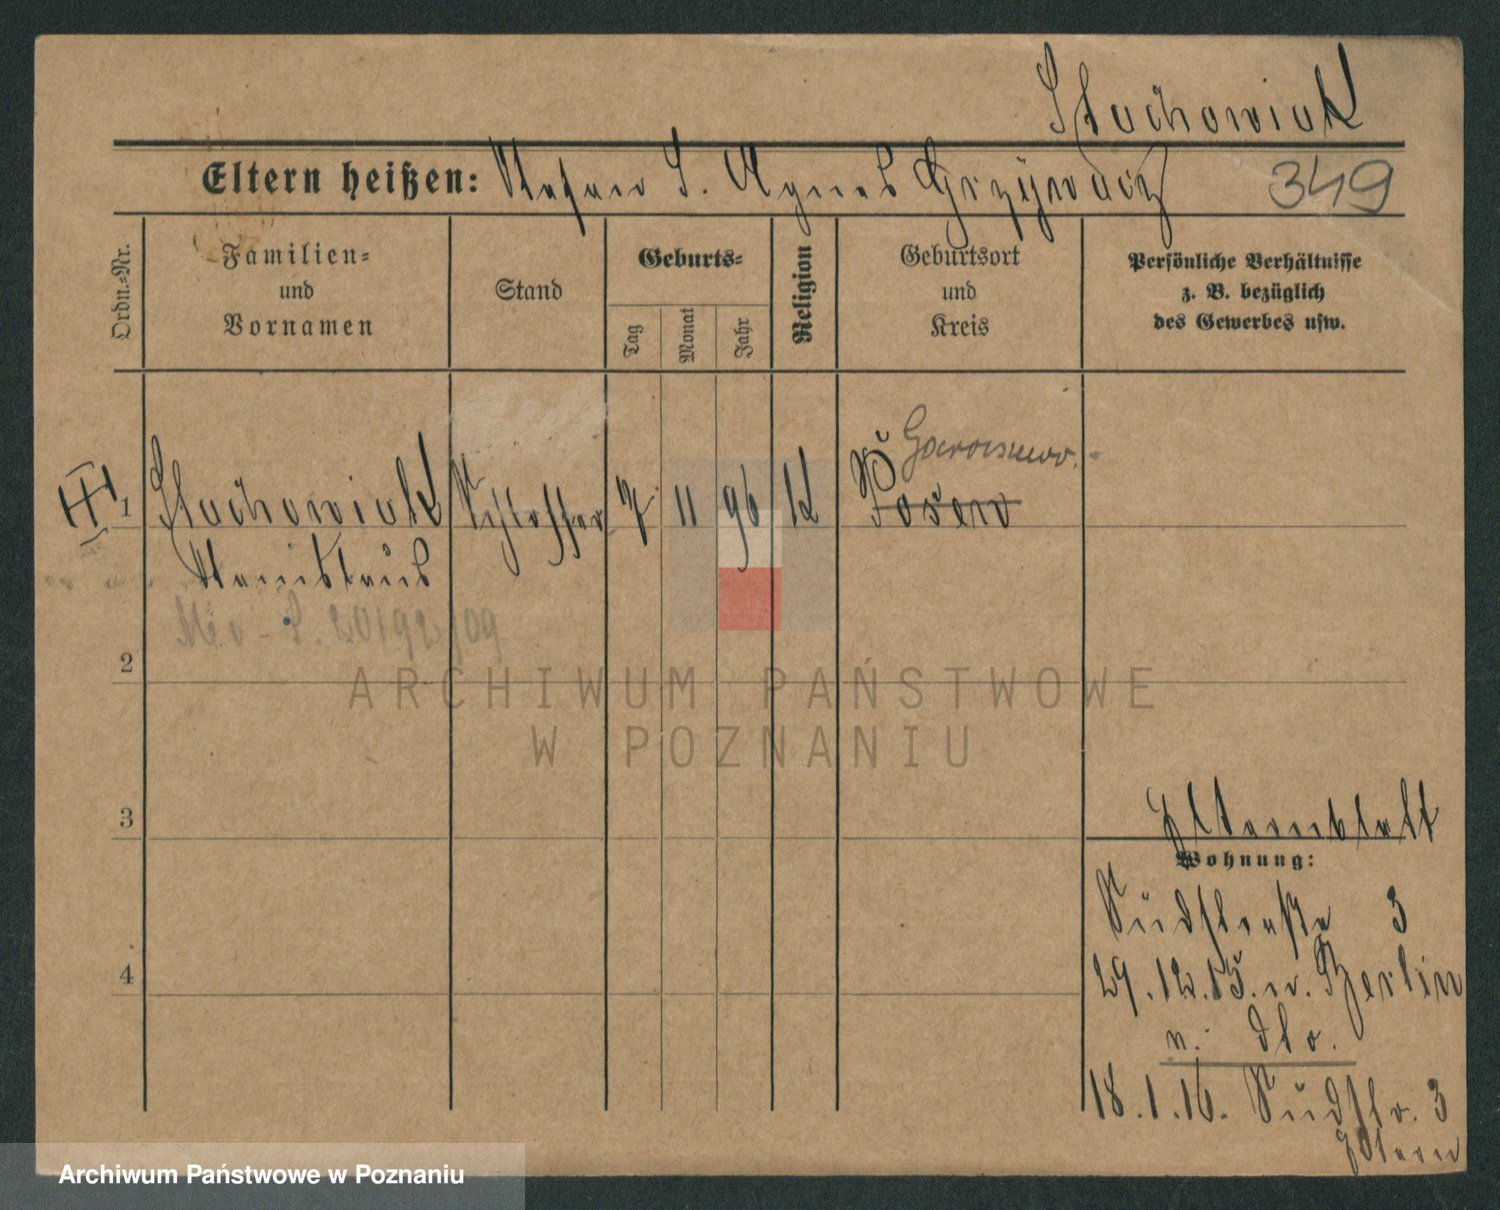 Stachowiak
Eltern heißen: Stefan S. Agnes Grzybwacz
349
Ordn.-Nr.
Familien-
und
Vornamen
Stand
Geburts-
Tag
Monat
Jahr
Religion
Geburtsort
und
Kreis
Persönliche Verhältnisse
z. B. bezüglich
des Gewerbes usw.
1
Stachowiak
Schlosser
7. 11 96
K
Posen
Stanislaus
2
3
4
ARCHIWUM PAŃSTWOWE
W POZNANIU
Elternblatt
Wohnung:
Südstraße 3
29.12.15. n. Berlin
v. dto.
18.1.16. Südstr. 3
Eltern
Archiwum Państwowe w Poznaniu